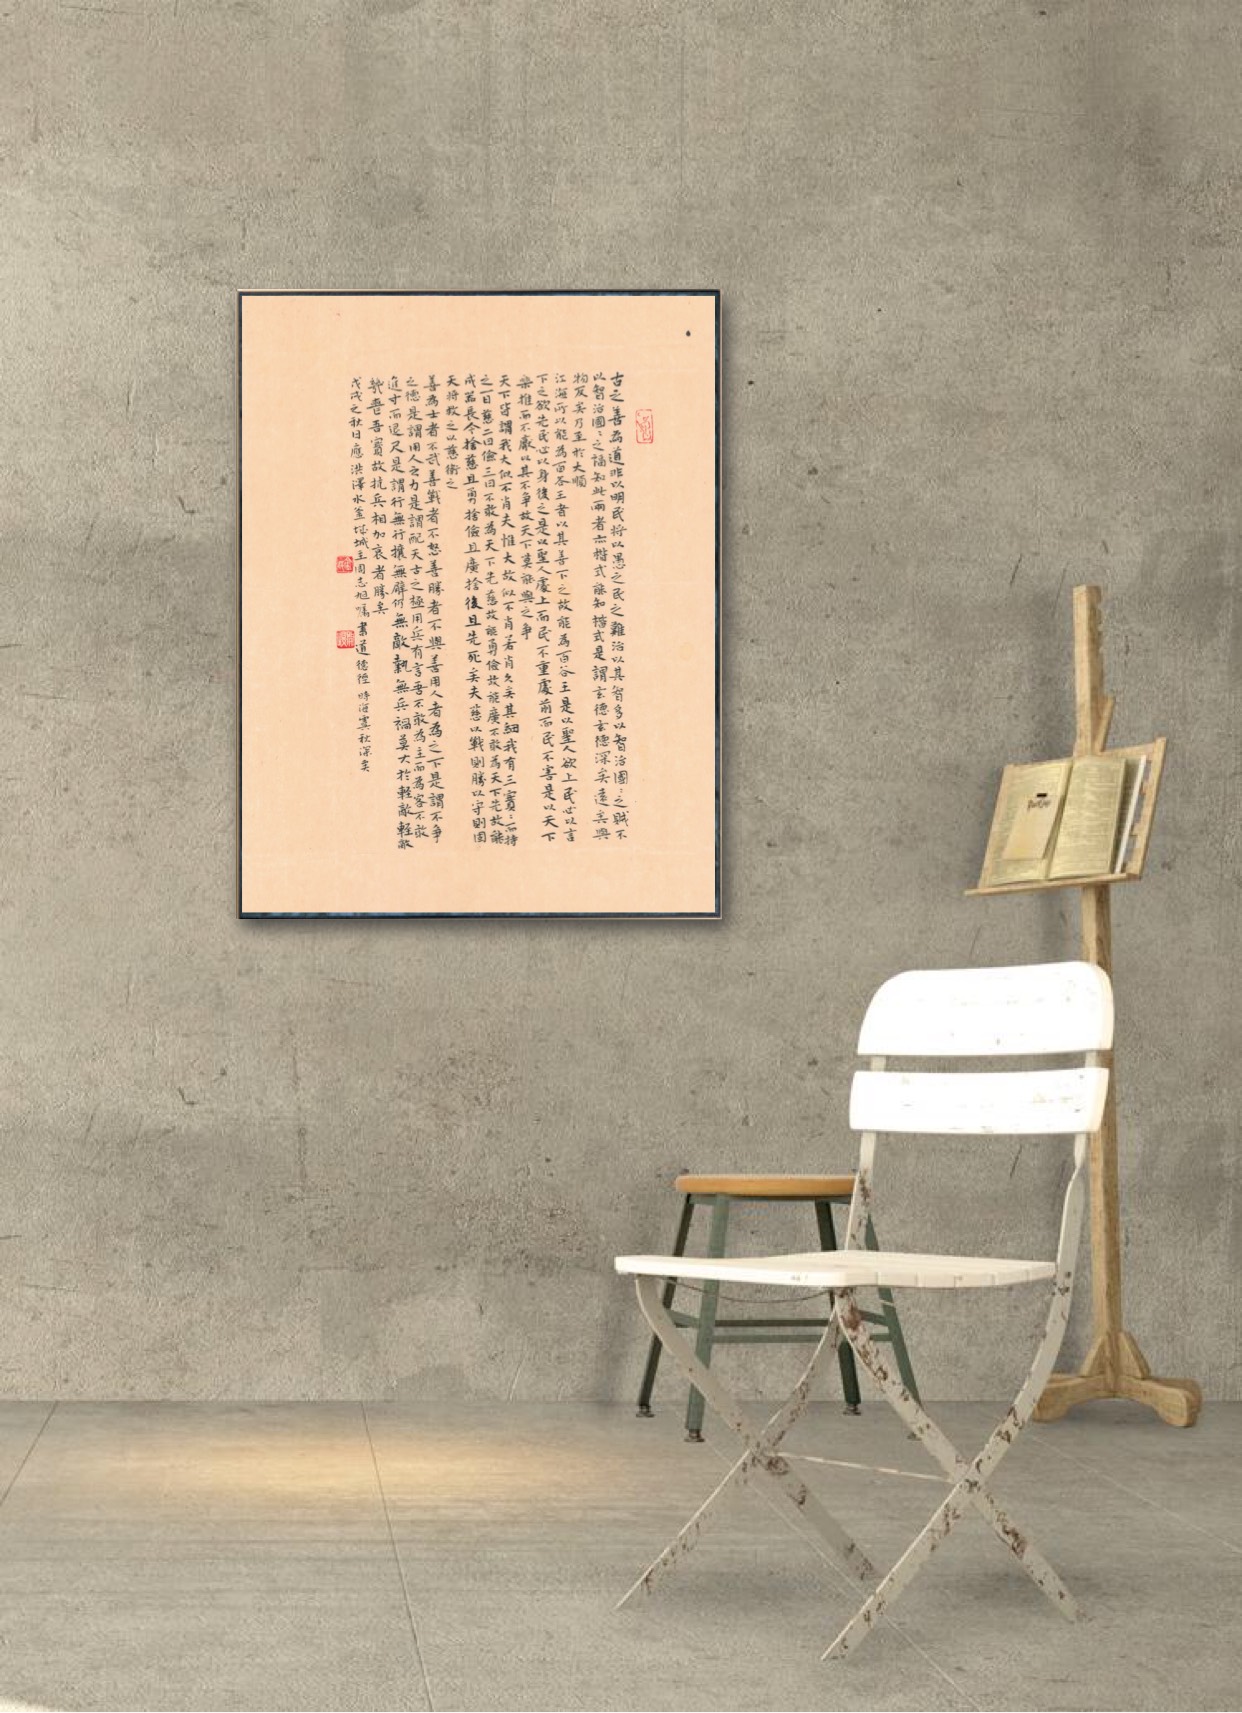 古之善為道非以明民将以愚之民之難治以其智多以智治國〻之賊不
以智治國〻之福知此兩者亦楷式能知楷式是謂玄德玄德深矣遠矣與
物反矣乃至於大順
江海所以能為百谷王者以其善下之故能為百谷王是以聖人欲上民必以言
下之欲先民必以身後之是以聖人處上而民不重處前而民不害是以天下
樂推而不厭以其不争故天下莫能與之争
天下皆謂我大似不肖夫惟大故似不肖若肖久矣其細我有三寶〻而持
之一曰慈二曰儉三曰不敢為天下先慈故能勇儉故能廣不敢為天下先故能
成器長今捨慈且勇捨儉且廣捨後且先死矣夫慈以戰則勝以守則固
天将救之以慈衛之
善為士者不武善戰者不怒善勝者不與善用人者為之下是謂不争
之德是謂用人之力是謂配天古之極用兵有言吾不敢為主而為客不敢
進寸而退尺是謂行無行攘無臂仍無敵執無兵禍莫大於輕敵輕敵
幾喪吾寶故抗兵相加哀者勝矣
戊戌之秋日應洪澤水釜城主周志旭嘱書道德經時海秋深矣